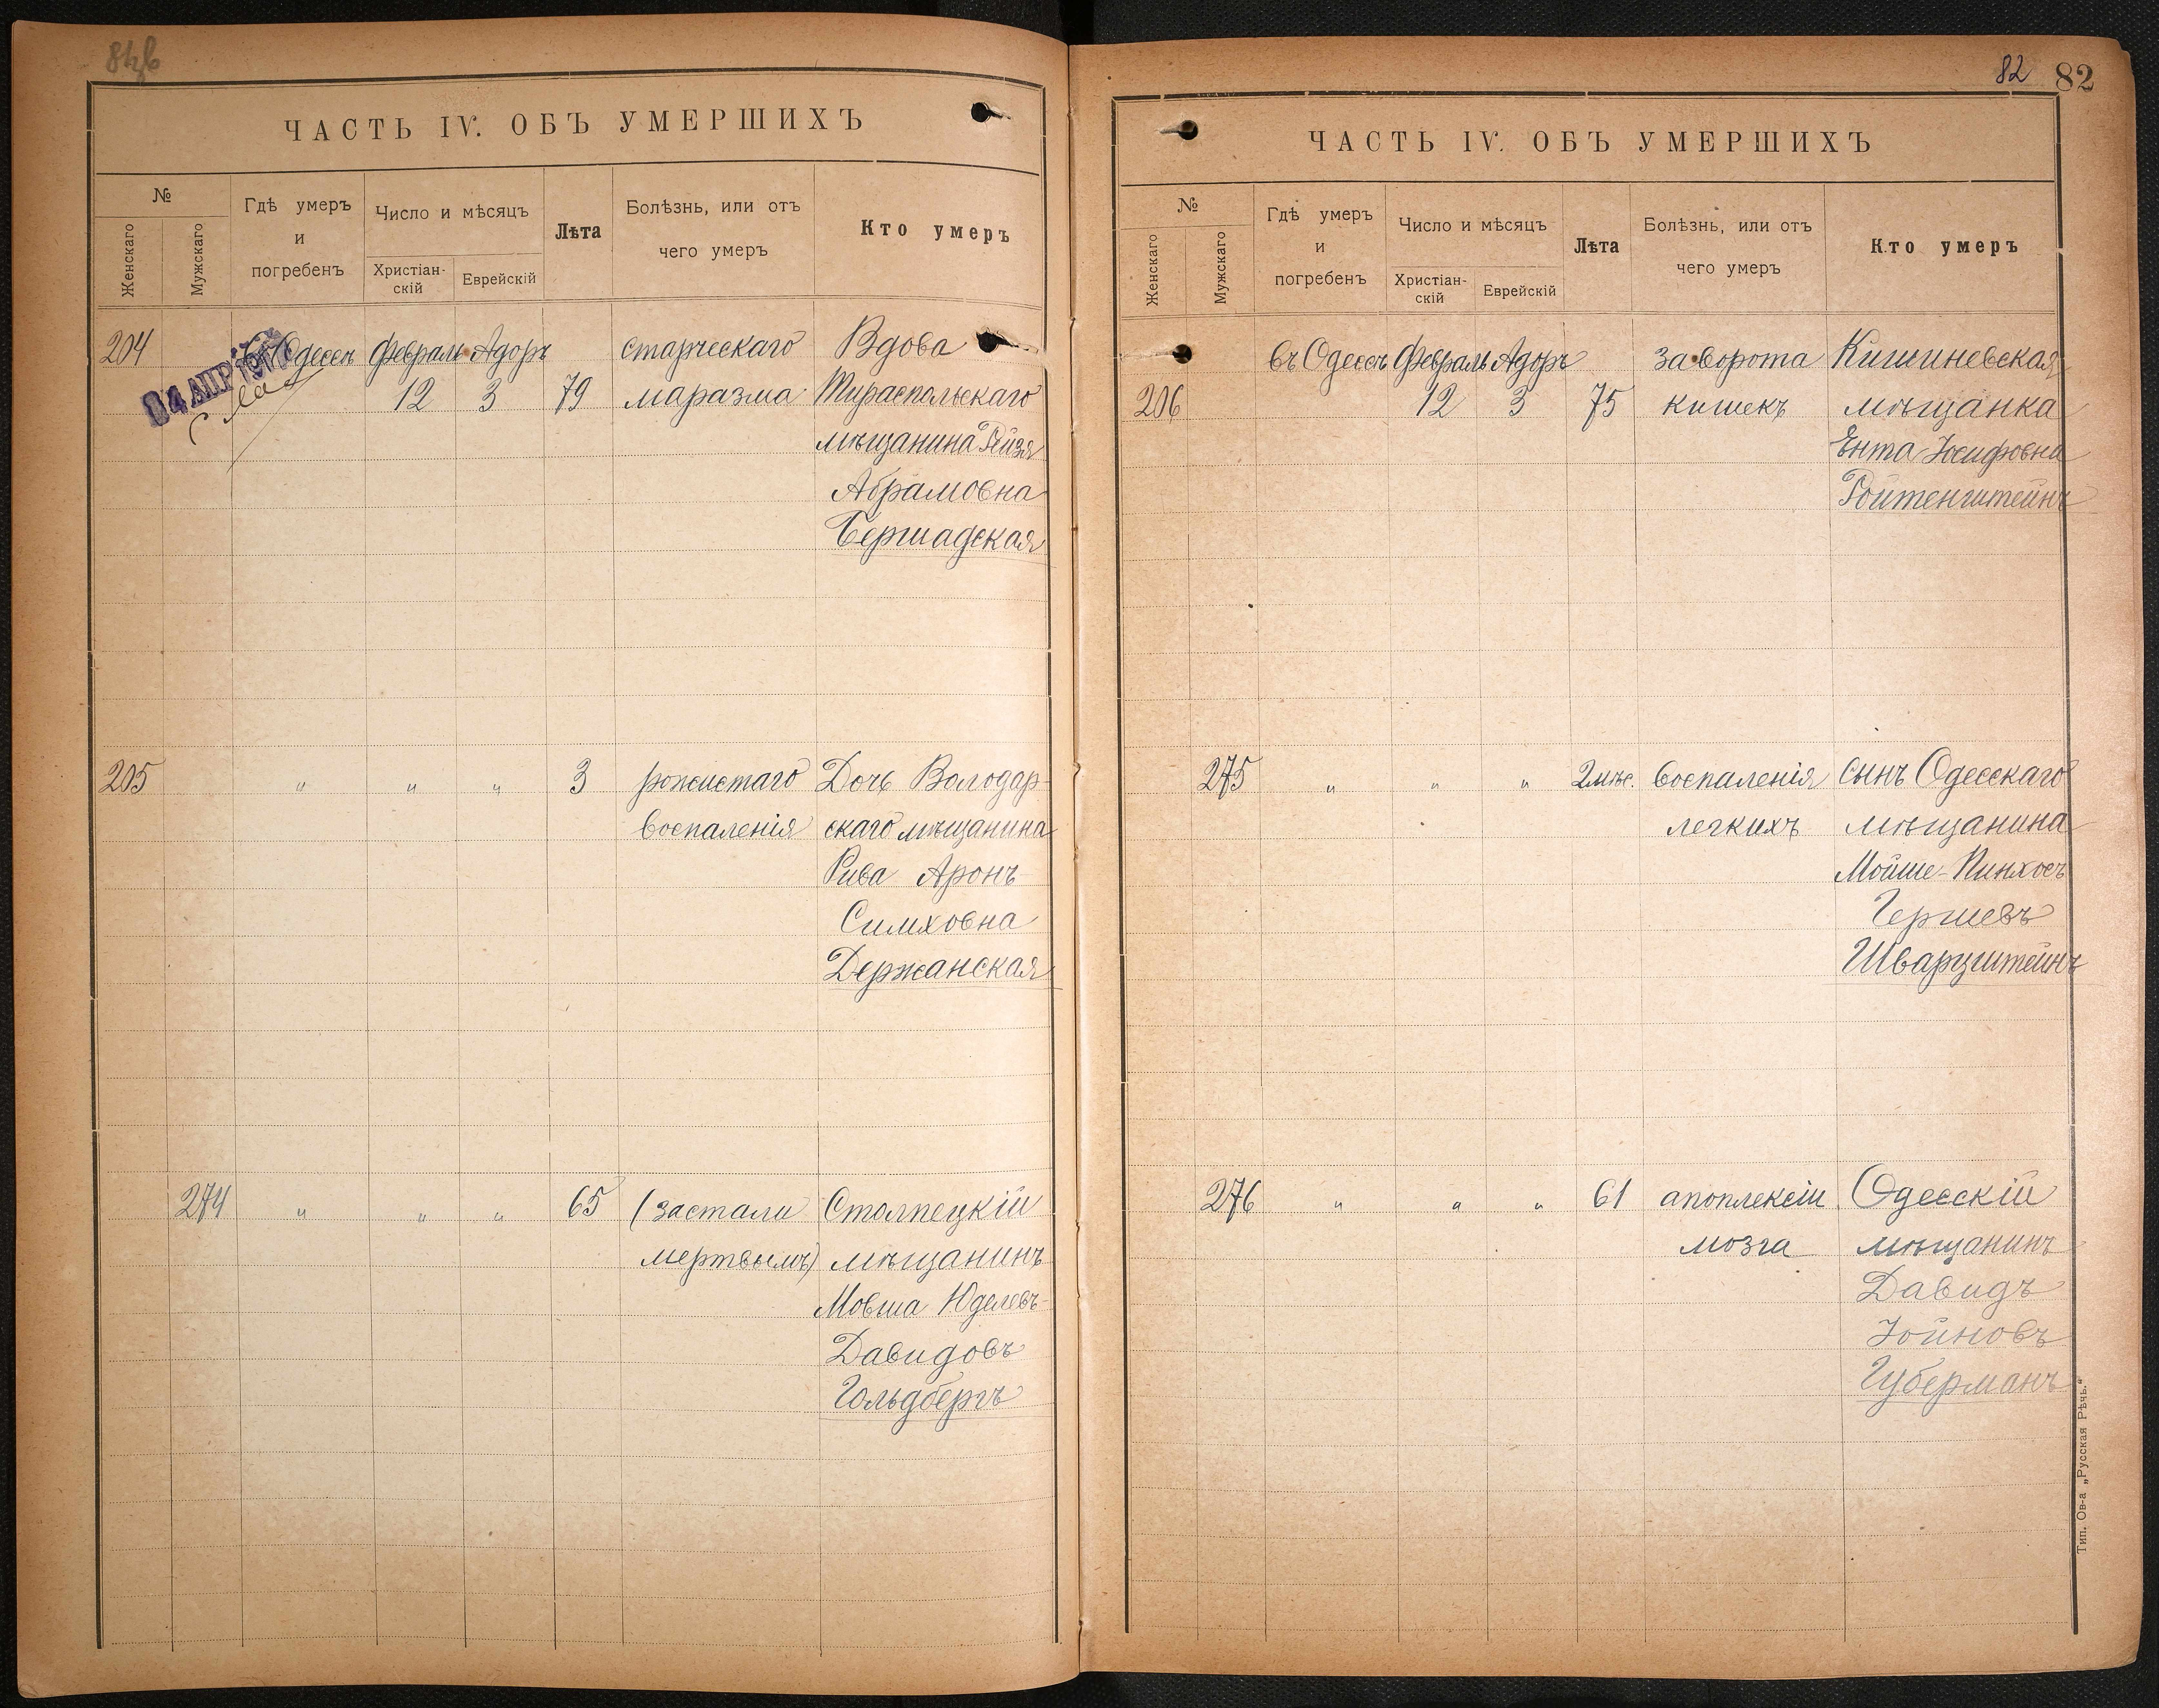 81об
ЧАСТЬ IV. ОБЪ УМЕРШИХЪ
№
Женскаго
Мужскаго
Гдѣ умеръ
и
погребенъ
Число и мѣсяцъ
Христіан-
скій
Еврейскій
Лѣта
Болѣзнь, или отъ
чего умеръ
Кто умеръ
204 Одессѣ февраль Адоръ старческаго Вдова
04 АПР
12 3 79 маразма Тираспольскаго
мѣщанина Рейзя
Абрамовна
Бершадская
205 " " " 3 рожистаго Дочь Володар-
воспаленія скаго мѣщанина
Рива Аронъ-
Симховна
Держанская
274 " " " 65 (застали Столпецкій
мертвымъ) мѣщанинъ
Мовша Юделевъ-
Давидовъ
Гольдбергъ
82 82
ЧАСТЬ IV. ОБЪ УМЕРШИХЪ
№
Женскаго
Мужскаго
Гдѣ умеръ
и
погребенъ
Число и мѣсяцъ
Христіан-
скій
Еврейскій
Лѣта
Болѣзнь, или отъ
чего умеръ
Кто умеръ
въ Одессѣ февраль Адоръ заворота Кишиневская
206 12 3 75 кишекъ мѣщанка
Ента Іосифовна
Ройтенштейнъ
275 " " " 2 мѣс. воспаленія сынъ Одесскаго
легкихъ мѣщанина
Мойше-Пинхосъ
Гершевъ
Шварцштейнъ
276 " " " 61 апоплексіи Одесскій
мозга мѣщанинъ
Давидъ
Іойновъ
Губерманъ
Тип. Ов-а „Русская Рѣчь."